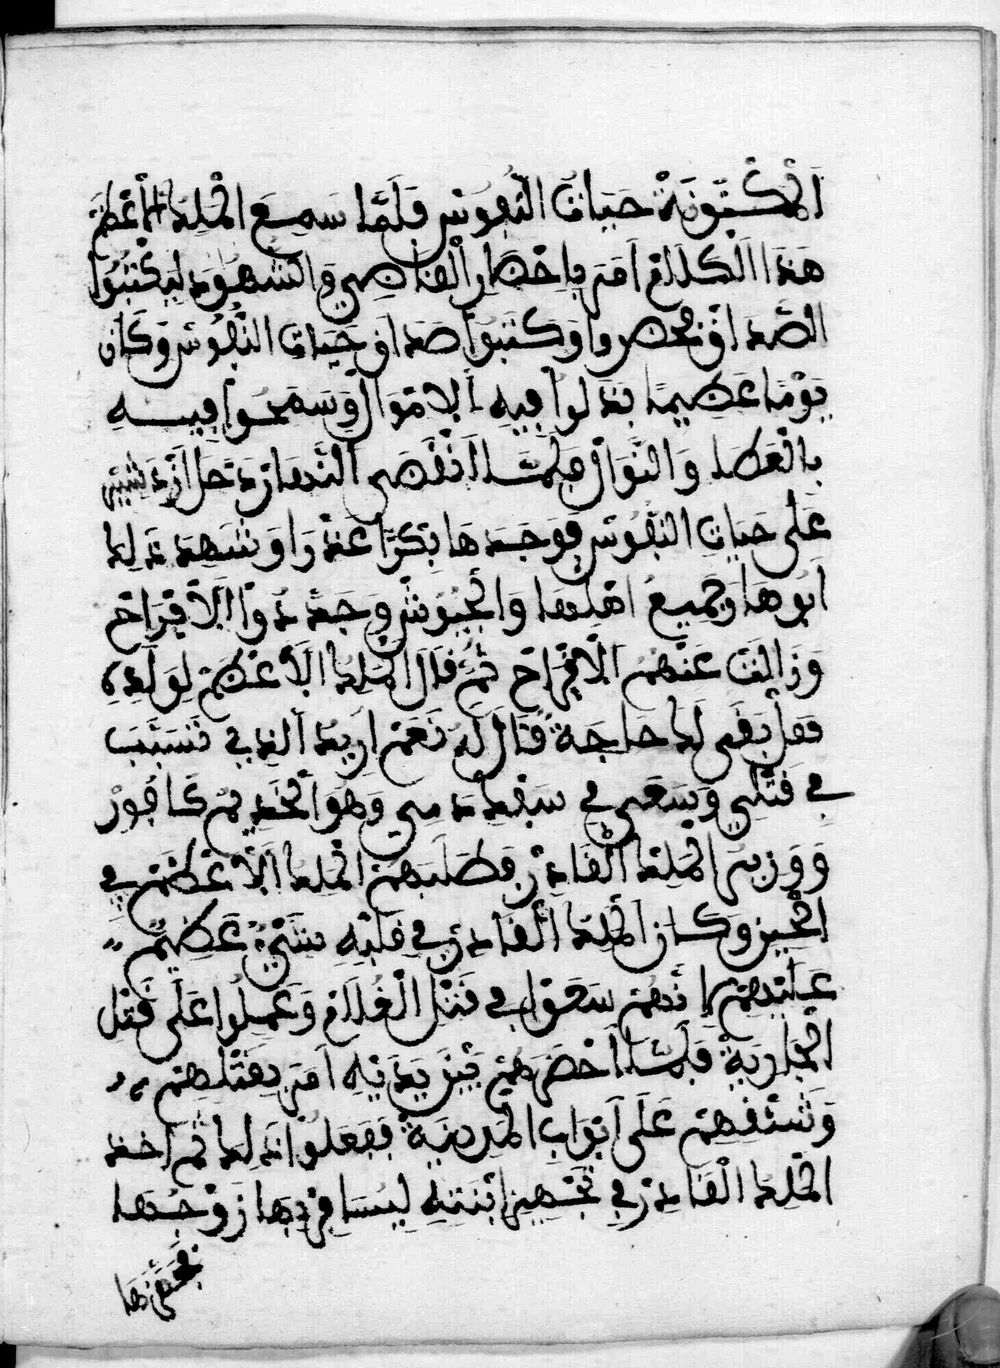 المكنونة حيات النفوس فلما سمع الملك الاعظم
هذا الكلام امر باحضار القاضي والشهود ليكتبوا
الصداق فحضروا وكتبوا صداق حيات النفوس وكان
يوما عظيما بذلوا فيه الاموال وسمحوا فيه
بالعطا والنوال فلما انقضى النهار دخل ازدشير
على حيات النفوس فوجدها بكرا عذراء وشهد ذلك
ابوها وجميع اهلها والجيوش وجددوا الافراح
وزالت عنهم الاقراح ثم قال الملك الاعظم لولده
هل بقى لك حاجة قال له نعم اريد الذي تسبب
في قتلي وسعى في سفك دمي وهو الخديم كافور
ووزير الملك القادر فطلبهم الملك الاعظم في
الحين وكان الملك القادر في قلبه شيء عظيم
عليهم لانهم سعوا في قتل الغلام وعملوا على قتل
الجارية فلما احضرهم بين يديه امر بقتلهم
وشنقهم على ابواب المدينة ففعلوا ذلك ثم اخذ
الملك القادر في تجهيز ابنته ليسافر بها زوجها
فجهزها